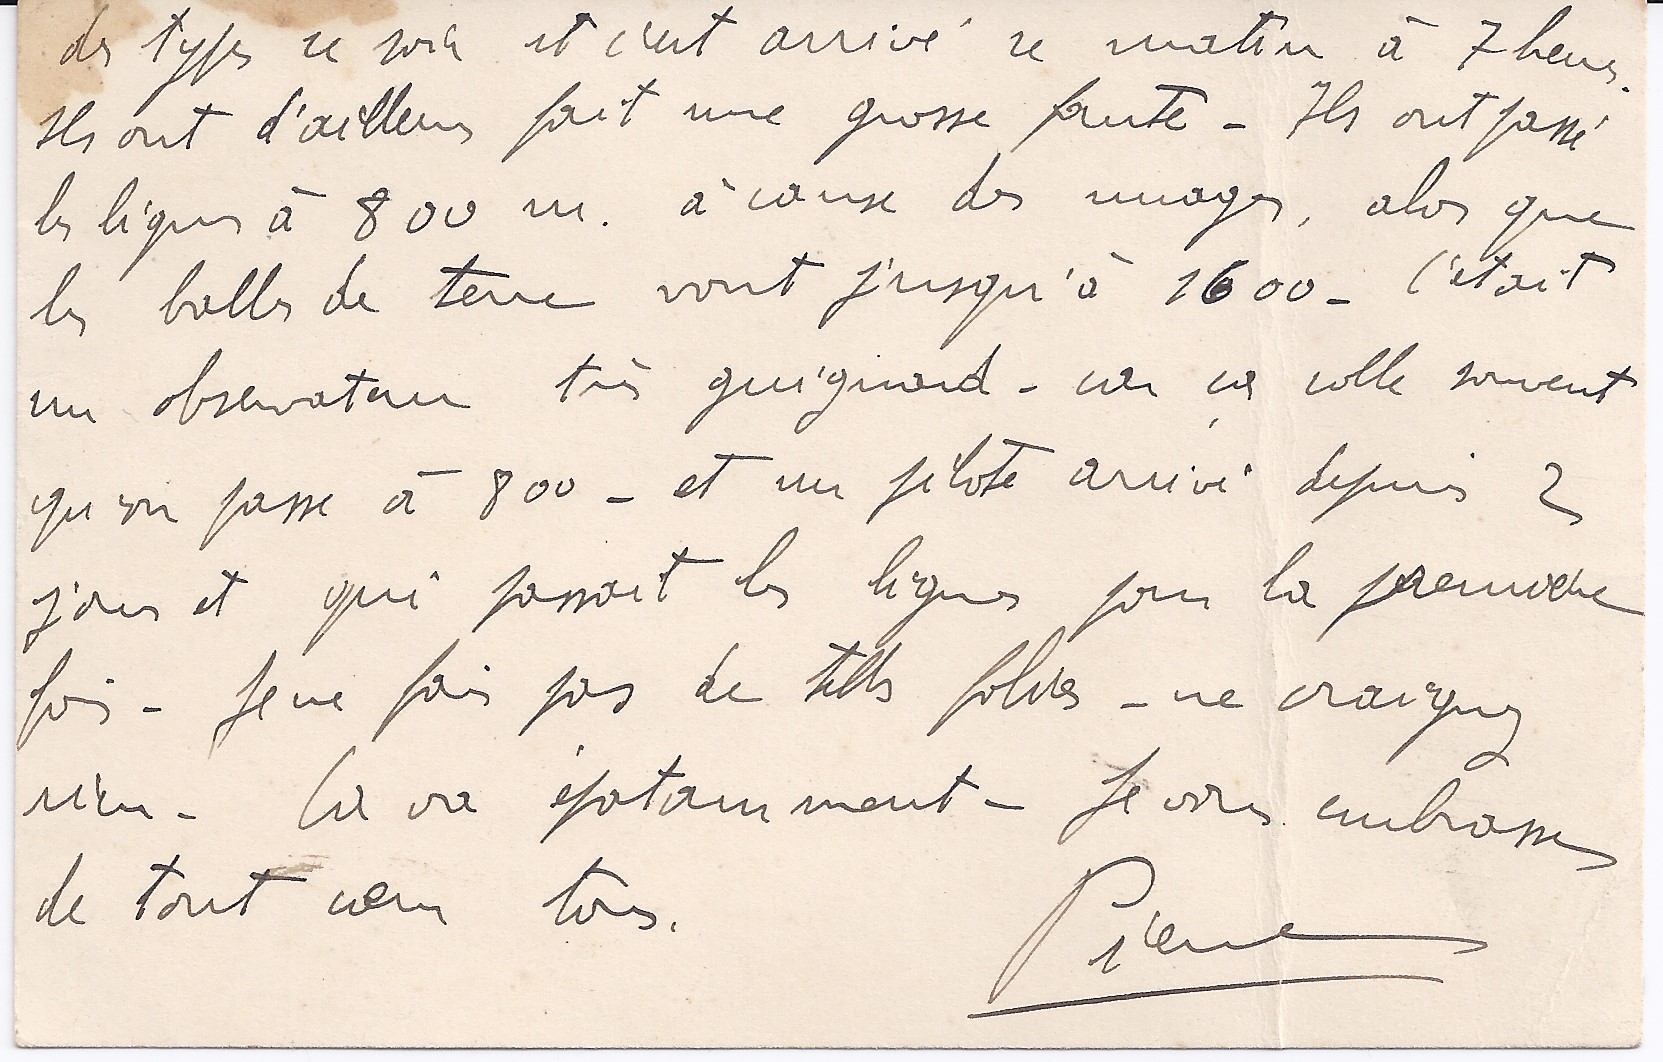 des types ce soir et c'est arrivé ce matin à 7 heures.
Ils ont d'ailleurs fait une grosse faute - Ils ont passé
les lignes à 800 m. à cause des nuages, alors que
les balles de terre vont jusqu'à 1600 - C'était
un observateur très guignard - car ça colle souvent
qu'on passe à 800 - et un pilote arrivé depuis 2
jours et qui passait les lignes pour la première
fois - Je ne fais pas de telles folies - ne craignez
rien - Ça va épatamment - Je vous embrasse
de tout cœur tous.
Pierre